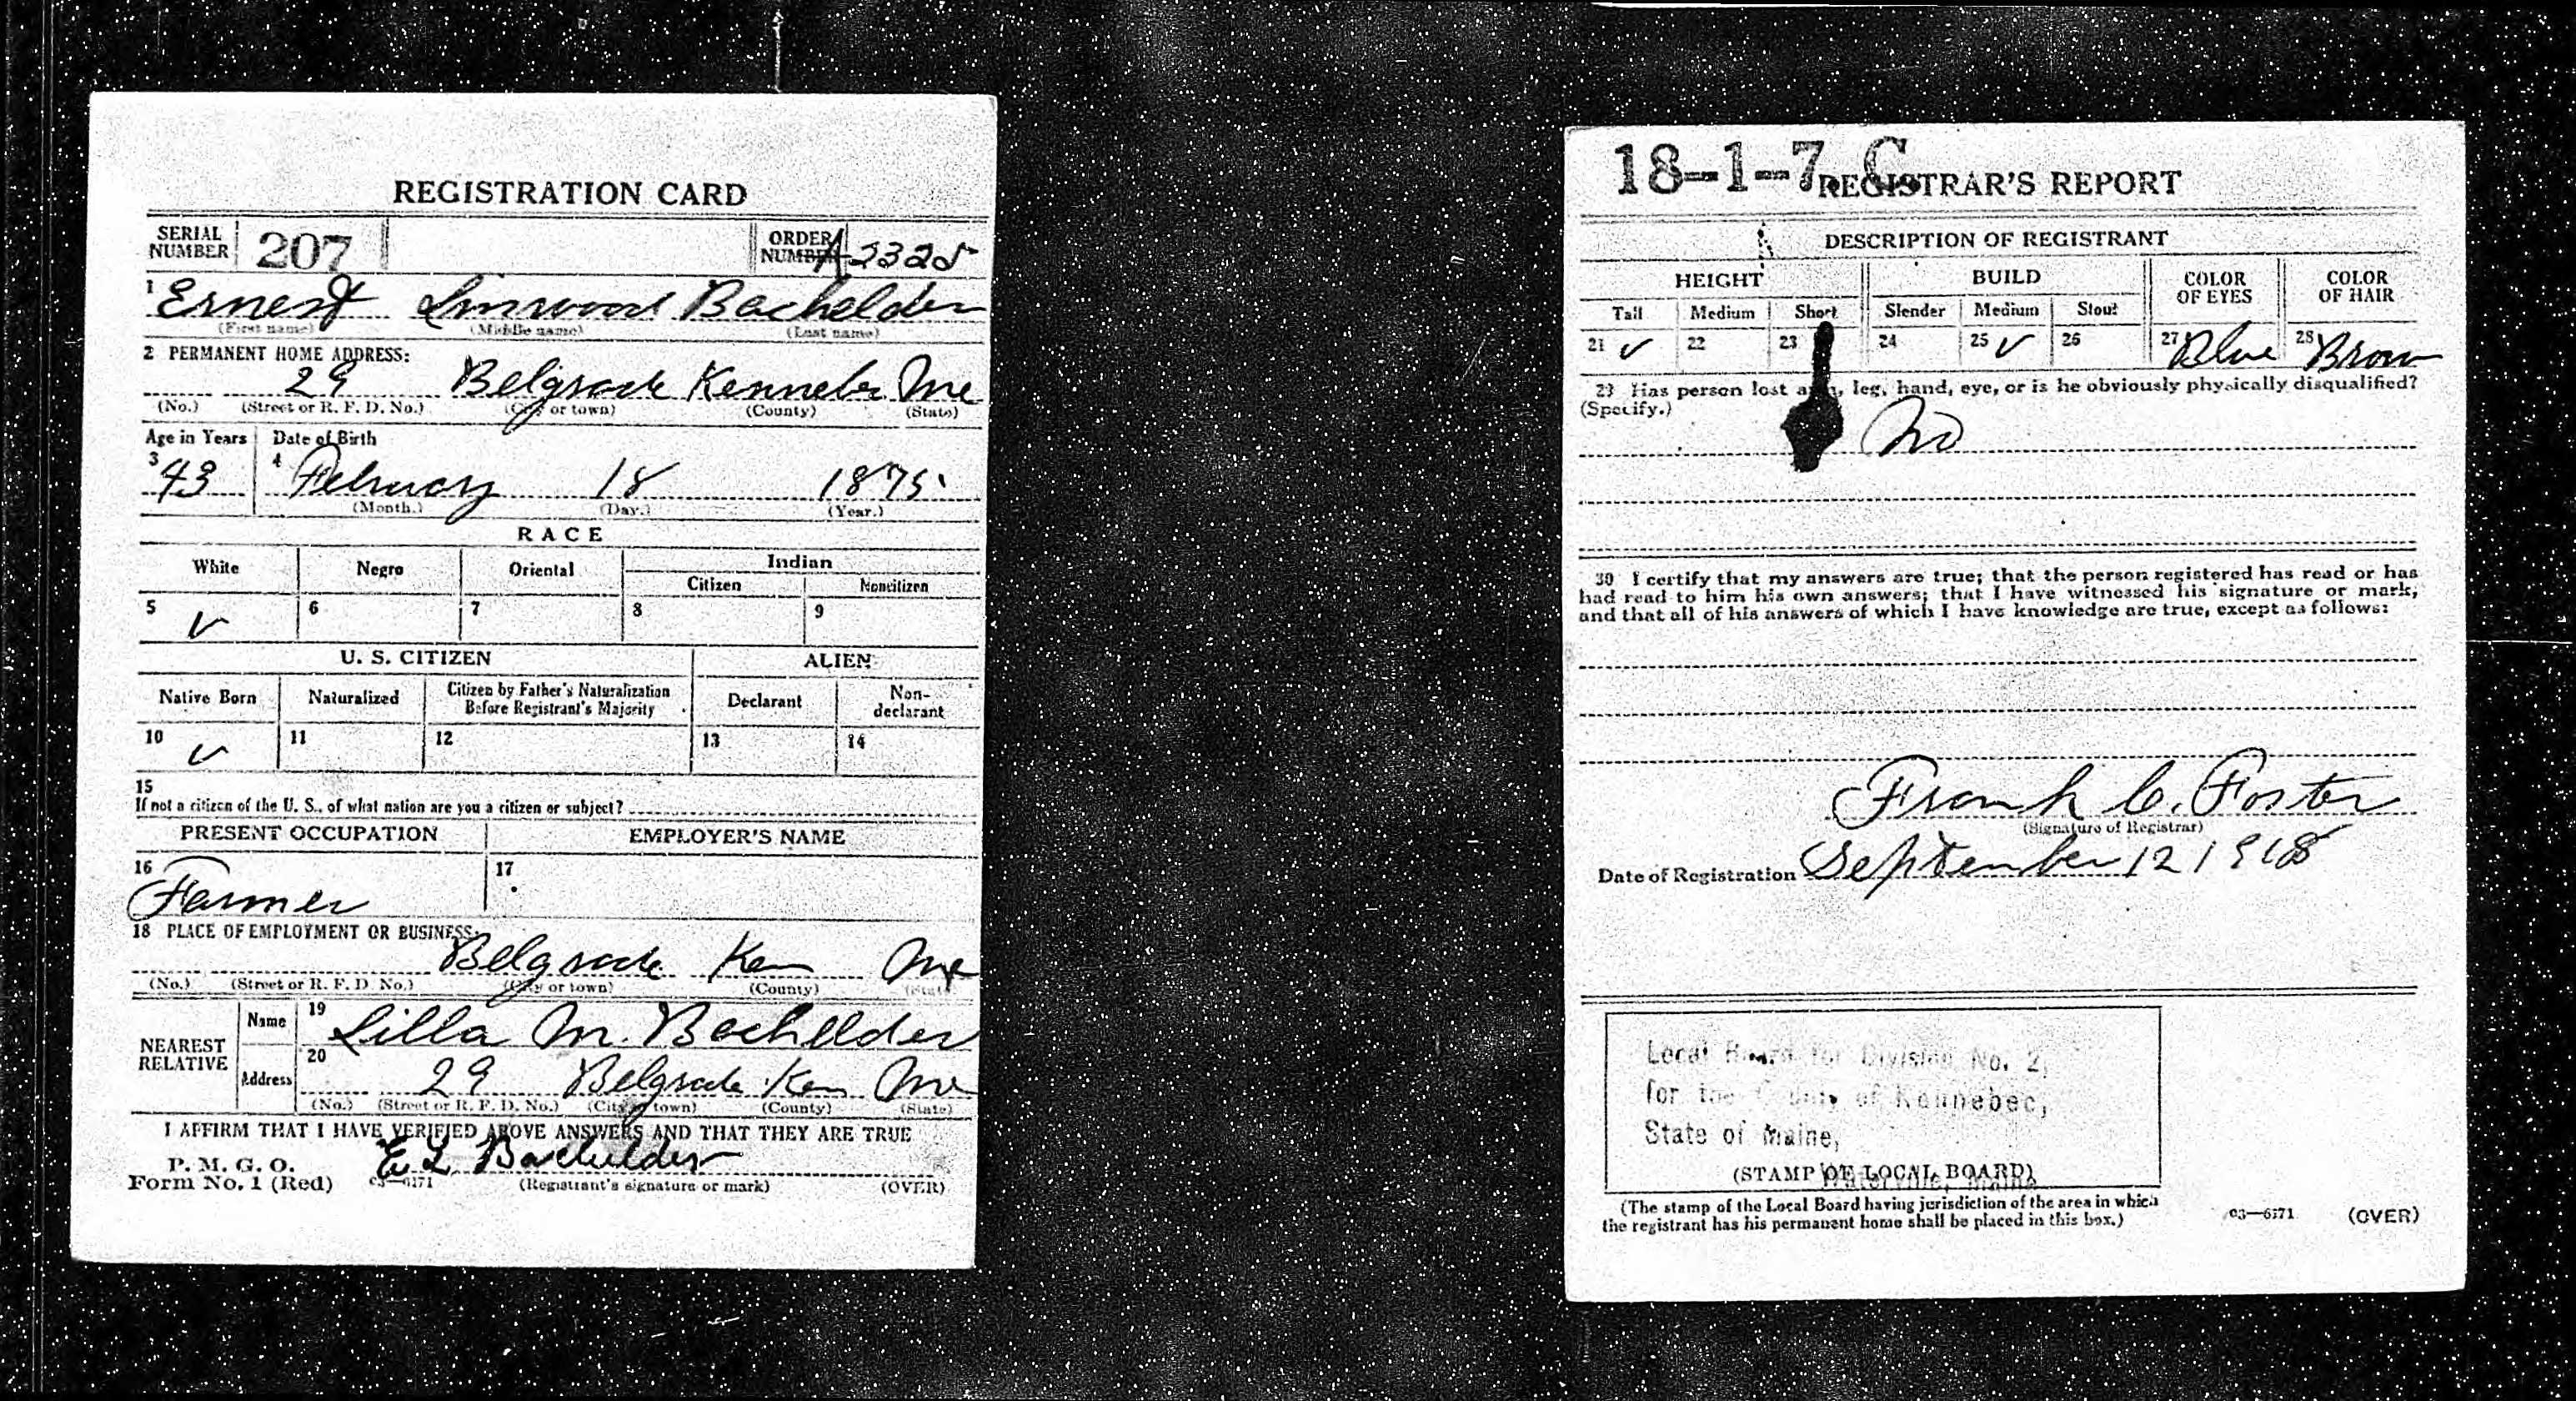 REGISTRATION CARD
SERIAL NUMBER 207 ORDER NUMBER A2325
1 Ernest Linwood Bachelder
(First name) (Middle name) (Last name)
2 PERMANENT HOME ADDRESS:
29 Belgrade Kennebec Me
(No.) (Street or R. F. D. No.) (City or town) (County) (State)
Age in Years Date of Birth
3 43 4 February 18 1875
(Month.) (Day.) (Year.)
RACE
White Negro Oriental Indian
Citizen Noncitizen
5 ✓ 6 7 8 9
U. S. CITIZEN ALIEN
Native Born Naturalized Citizen by Father's Naturalization Before Registrant's Majority Declarant Non-declarant
10 ✓ 11 12 13 14
15
If not a citizen of the U. S., of what nation are you a citizen or subject?
PRESENT OCCUPATION EMPLOYER'S NAME
16 Farmer 17
18 PLACE OF EMPLOYMENT OR BUSINESS:
Belgrade Ken Me
(No.) (Street or R. F. D. No.) (City or town) (County) (State)
NEAREST RELATIVE Name 19 Lilla M. Bachelder
Address 20 29 Belgrade Ken Me
(No.) (Street or R. F. D. No.) (City or town) (County) (State)
I AFFIRM THAT I HAVE VERIFIED ABOVE ANSWERS AND THAT THEY ARE TRUE
P. M. G. O.
Form No. 1 (Red) 03—6171 E L Bachelder
(Registrant's signature or mark) (OVER)
18-1-7. C.
REGISTRAR'S REPORT
DESCRIPTION OF REGISTRANT
HEIGHT BUILD COLOR OF EYES COLOR OF HAIR
Tall Medium Short Slender Medium Stout
21 ✓ 22 23 24 25 ✓ 26 27 Blue 28 Brow
29 Has person lost arm, leg, hand, eye, or is he obviously physically disqualified?
(Specify.)
No
30 I certify that my answers are true; that the person registered has read or has
had read to him his own answers; that I have witnessed his signature or mark,
and that all of his answers of which I have knowledge are true, except as follows:
Frank C. Foster
(Signature of Registrar)
Date of Registration September 12 1918
Local Board for Division No. 2,
for the County of Kennebec,
State of Maine,
Waterville, Maine
(STAMP OF LOCAL BOARD)
(The stamp of the Local Board having jurisdiction of the area in which
the registrant has his permanent home shall be placed in this box.)
03—6171 (OVER)